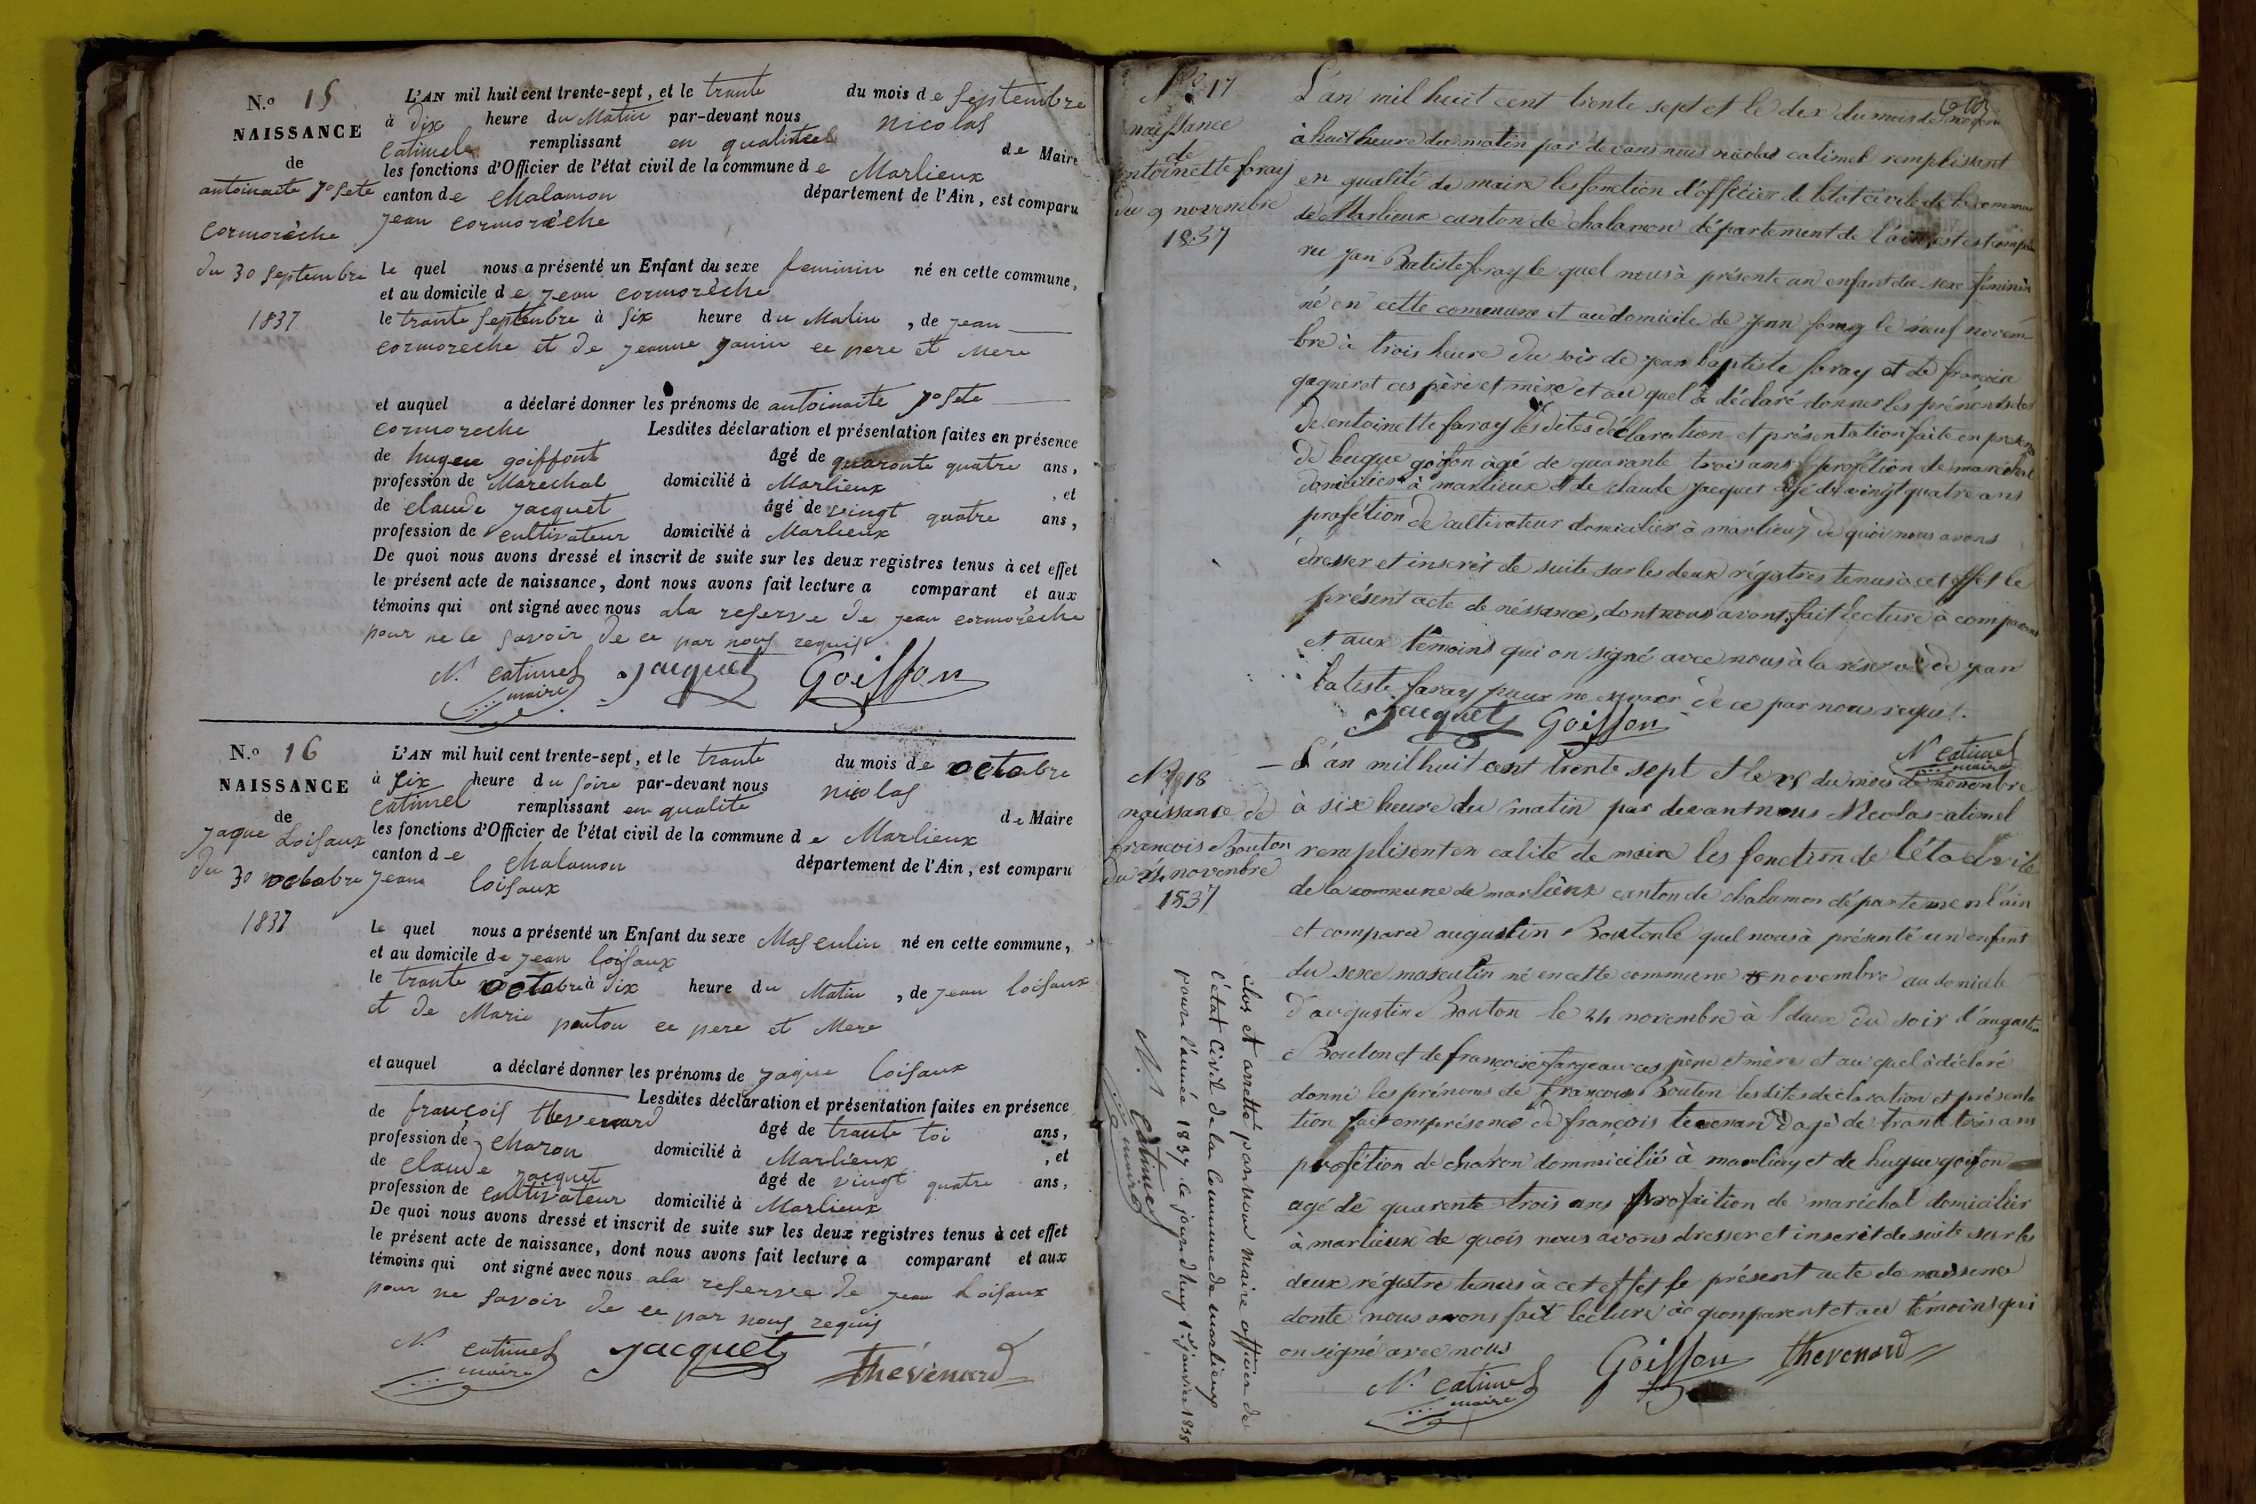 N.º 15
NAISSANCE
de
antoinaite josete
cormorèche
du 30 septembre
1837
L'AN mil huit cent trente-sept, et le trante du mois de septembre
à dix heure du Matin par-devant nous nicolas
catimel remplissant en qualité de Maire
les fonctions d'Officier de l'état civil de la commune de Marlieux
canton de chalamon département de l'Ain, est comparu
jean cormorèche
le quel nous a présenté un Enfant du sexe feminin né en cette commune,
et au domicile de jean cormorèche
le trante septembre à six heure du Matin, de jean
cormoreche et de jeanne janin ce pere et Mere
et auquel a déclaré donner les prénoms de antoinaite josete
cormoreche Lesdites déclaration et présentation faites en présence
de hugue goiffont âgé de quaronte quatre ans,
profession de Marechal domicilié à Marlieux, et
de claude jacquet âgé de vingt quatre ans,
profession de cultivateur domicilié à Marlieux
De quoi nous avons dressé et inscrit de suite sur les deux registres tenus à cet effet
le présent acte de naissance, dont nous avons fait lecture a comparant et aux
témoins qui ont signé avec nous ala reserve de jean cormorèche
pour ne le savoir de ce par nous requis
N. catimel maire Jacquet Goiffon
N.º 16
NAISSANCE
de
jaque Loisaux
du 30 octobre
1837
L'AN mil huit cent trente-sept, et le trante du mois de octobre
à six heure du soire par-devant nous nicolas
catimel remplissant en qualite de Maire
les fonctions d'Officier de l'état civil de la commune de Marlieux
canton de chalamon département de l'Ain, est comparu
jean loisaux
le quel nous a présenté un Enfant du sexe Masculin né en cette commune,
et au domicile de jean loisaux
le trante octobre à dix heure du Matin, de jean loisaux
et de Marie poutou ce pere et Mere
et auquel a déclaré donner les prénoms de jaque loisaux
Lesdites déclaration et présentation faites en présence
de françois thevenard âgé de trante toi ans,
profession de charon domicilié à Marlieux, et
de claude jacquet âgé de vingt quatre ans,
profession de cultivateur domicilié à Marlieux
De quoi nous avons dressé et inscrit de suite sur les deux registres tenus à cet effet
le présent acte de naissance, dont nous avons fait lecture a comparant et aux
témoins qui ont signé avec nous ala reserve de jean Loisaux
pour ne savoir de ce par nous requis
N. catimel maire Jacquet Thévenard
Nº 17
naissance
de
antoinette foray
du 9 novembre
1837
L'an mil huit cent trente sept et le dix du mois de
à huit heure du matin par devans nous nicolas catimel remplissent
en qualité de maire les fonction d'officier de l'état civile de la commune
de Marlieux canton de chalamon département de l'ain est compa
ru jan Batiste foray le quel nous à présente un enfant du sexe féminin
né en cette commune et au domicile de jean foray le neuf novem
bre à trois heure du soir de jean baptiste foray et de françoise
gagneret ces père et mère et au quel à déclaré donner les prénoms
de entoinette faray les dites déclaration et présentation faite en présence
de hugue goifon agé de quarante trois ans profétion de maréchal
domicilier à marlieux et de claude jacquet agé de vingt quatre ans
profétion de cultivateur domicilier à marlieux de quoi nous avons
dresser et inscrit de suite sur les deux régistres tenus à cet effet le
présent acte de néssance, dont nous avons fait lecture à comparent
et aux témoins qui on signé avec nous à la réserve de jean
batiste faray pour ne savoir de ce par nous requit.
Jacquet Goiffon N. catimel maire
Nº 18
naissance de
francois Bouton
du 24 novembre
1837
L'an mil huit cent trente sept et le 25 du mois de novembre
à six heure du matin par devant nous Nicolas catimel
remplisent en calité de maire les fonction de l'éta civile
de la commune de marlieux canton de chalamon département l'ain
et comparu augustin Bouton le quel nous à présenté un enfant
du sexe masculin né en cette commune novembre au domicile
d'augustin Bouton le 24 novembre à deux du soir d'augustin
Bouton et de françoise fargeau ces père et mère et au quel à déclaré
donné les prénoms de francois Bouton les dites déclaration et présenta
tion fait emprésence de françois tevenard agé de trant trois ans
profétion de charon dommicilié à marlieux et de hugue goifon
agé de quarente trois ans profaition de maréchal domicilier
à marlieux de quois nous avons dresser et inscrit de suite sur les
deux régistre tenus à cet effet le présent acte de naissence
donte nous avons fait lecture à comparent et au témoins qui
on signé avec nous
N. catimel maire Goiffon thevenard
clos et arretté par nous maire officier de
l'état Civil de la Commune de marlieux
pour l'année 1837 ce jourdhuy 1er janvier 1838
N. catimel maire